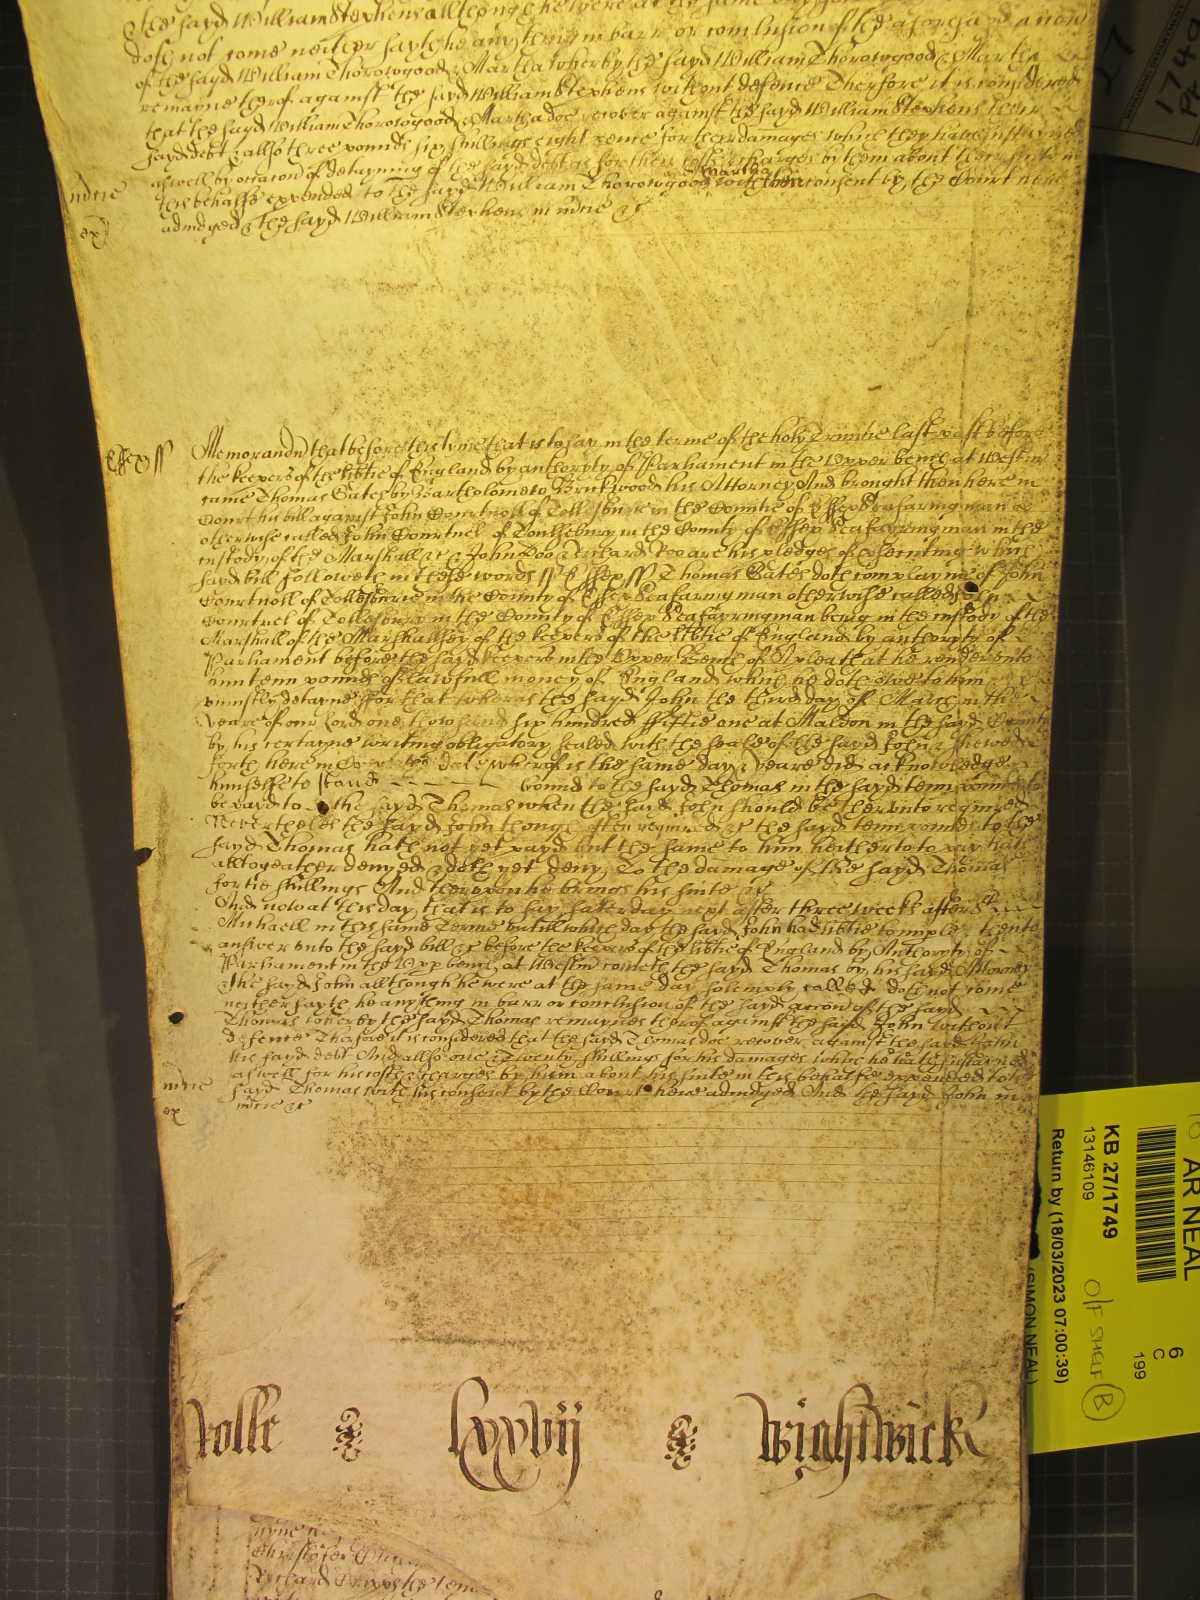 the sayd William Stephens allthough he were at the same day
doth not come neither sayth he any thing in barr or conclusion of the aforesayd accon
of the sayd William Thorowgood & Martha wherby the sayd William Thorowgood & Martha
remayne therof against the sayd William Stephens without defence Therfore it is considered
that the sayd William Thorowgood & Martha doe recover against the sayd William Stephens their
sayd debt & allso three pounds six shillings eight pence for their damages which they have susteyned
aswell by occasion of detayning of the sayd debt as for their costs & charges by them about their suite in
this behalfe expended to the sayd William Thorowgood and Martha with their consent by the Court here
adiudged & the sayd William Stephens in mcie &c
mcie
ex
Essex ss
Memorand that before this tyme that is to say in the terme of the holy Trinitie last past before
the keepers of the libtie of England by authoryty of Parliament in the Upper bench at Westm
came Thomas Gates by Bartholomew Brickwood his Attorney And brought then here in
Court his bill against John Courtnoll of Tollesburie in the Countie of Essex Seafaringman
otherwise called John Courtnel of Toulesbury in the County of Essex Seafaringman in the
custody of the Marshall &c & John Doo & Richard Roo are his pledges of prosecuting which
sayd bill followeth in these words ss Essex ss Thomas Gates doth complayne of John
Courtnoll of Tollesburie in the County of Essex Seafaring man otherwise called John
Courtnel of Tollesbury in the County of Essex Seafaringman being in the custody of the
Marshall of the Marshallsey of the keepers of the libtie of England by authoryty of
Parliament before the sayd keepers in the Upper Bench of A plea that he render unto
him tenn pounds of lawfull money of England which he doth owe to him &
uniustly detayne ffor that wheras the sayd John the third day of March in the
yeare of our lord one thowsand six hundred fiftie one at Maldon in the sayd County
by his certayne writing obligatory sealed with the seale of the sayd John & shewed
forth here in Court whose date wherof is the same day & yeare did acknowledge
himselfe to stand bound to the sayd Thomas in the sayd tenn pounds to
be payd to the sayd Thomas when the sayd John should be therunto required
Neverthelesse the sayd John though often required &c the sayd tenn pounds to the
sayd Thomas hath not yet payd but the same to him hetherto to pay hath
alltogeather denyed & doth yet deny To the damage of the sayd Thomas
fortie shillings And therupon he brings his suite &c
And now at this day that is to say Saterday next after three weeks after S
Michaell in this same Terme untill which day the sayd John had libtie to imple & then to
answer unto the sayd bill &c before the keepers of the libtie of England by Authoryty of
Parliament in the Upp bench at Westm cometh the sayd Thomas by his sayd Attorney
& the sayd John allthough he were at the same day solemply called doth not come
neither sayth he anything in barr or conclusion of the sayd accon of the sayd
Thomas wherby the sayd Thomas remaynes therof against the sayd John without
defence Therfore it is considered that the sayd Thomas doe recover against the sayd John
his sayd debt And allso one & twenty shillings for his damages which he hath susteyned
aswell for his costs & charges by him about his suite in this behalfe expended to the
sayd Thomas with his consent by the Court here adiudged And the sayd John in
mcie &c
mcie
ex
Rolle lxxvij Wightwick
Christofer
Richard
KB 27/1749
13146109
Return by (18/03/2023 07:00:39)
(SIMON NEAL)
AR NEAL
6
C
199
O/F SHELF B